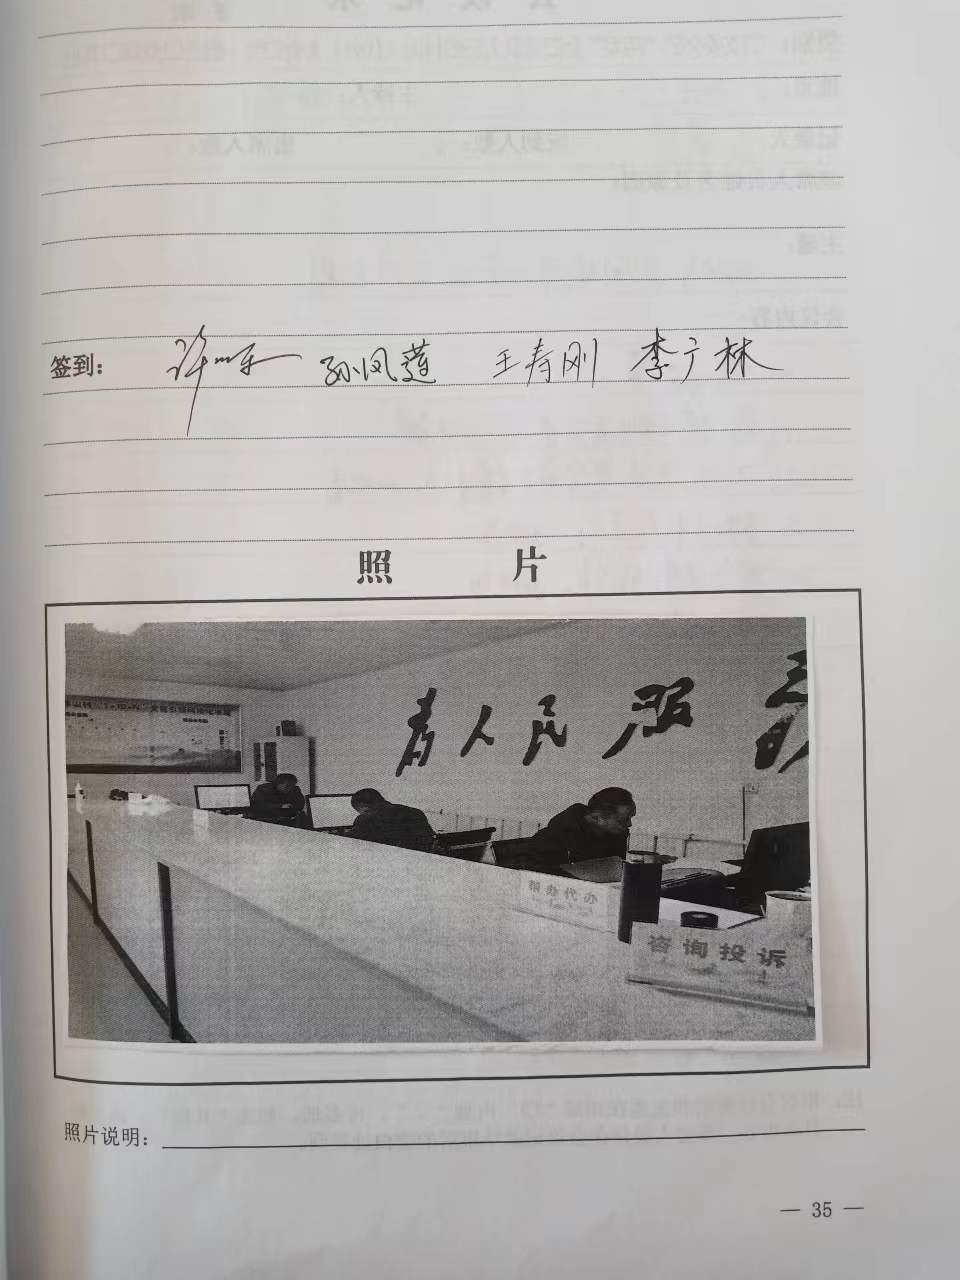 签到： 孙凤莲 王寿刚 李广林
照 片
为人民服
帮办代办
咨询投诉
照片说明：
— 35 —